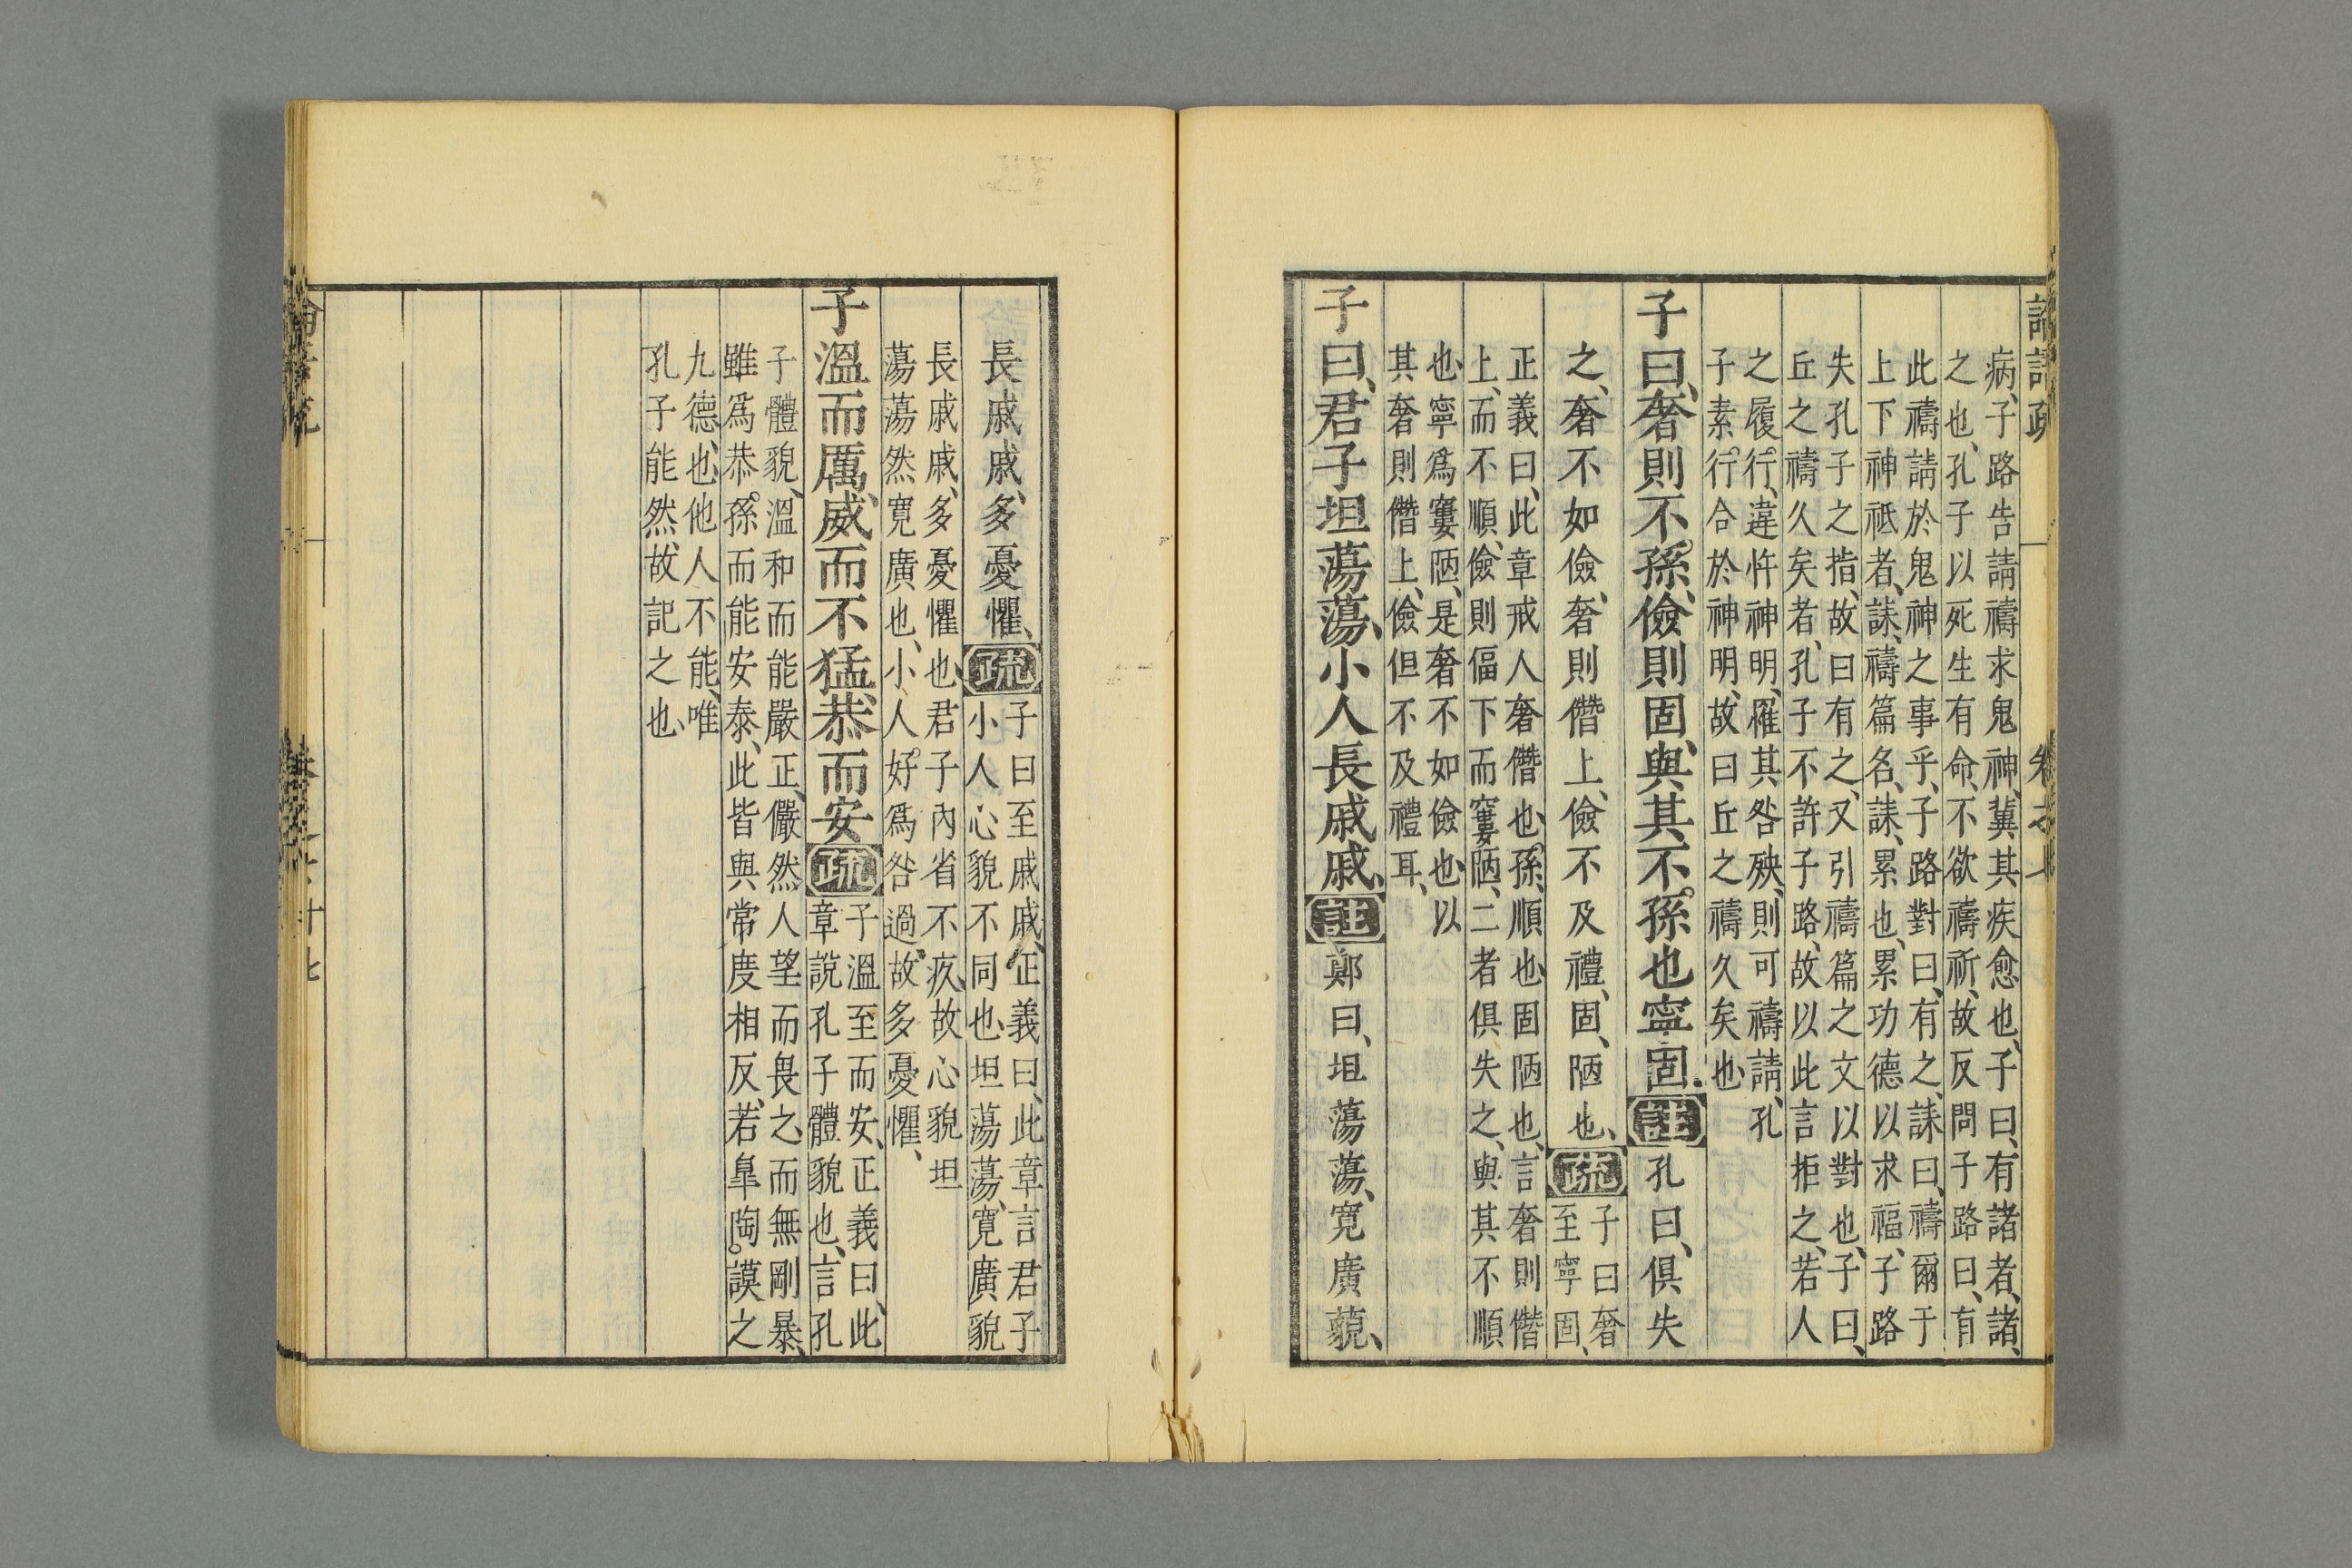 病、子路告請禱求鬼神、冀其疾愈也、子曰、有諸者、諸、
之也、孔子以死生有命、不欲禱祈、故反問子路曰、有
此禱請於鬼神之事乎、子路對曰、有之、誄曰、禱爾于
上下神祇者、誄、禱篇名、誄、累也、累功德以求福、子路
失孔子之指、故曰有之、又引禱篇之文以對也、子曰、
丘之禱久矣者、孔子不許子路、故以此言拒之、若人
之履行、違忤神明、罹其咎殃、則可禱請、孔
子素行合於神明、故曰丘之禱久矣也
子曰、奢則不孫、儉則固、與其不孫也寧固、註孔曰、俱失
之、奢不如儉、奢則僭上、儉不及禮、固、陋也、疏子曰奢
至寧固、
正義曰、此章戒人奢僭也、孫、順也、固陋也、言奢則僭
上、而不順、儉則偪下而窶陋、二者俱失之、與其不順
也、寧爲窶陋、是奢不如儉也、以
其奢則僭上、儉但不及禮耳、
子曰、君子坦蕩蕩、小人長戚戚、註鄭曰、坦蕩蕩、寬廣藐、
長戚戚、多憂懼、疏子曰至戚戚、正義曰、此章言君子
小人心貌不同也、坦蕩蕩、寬廣貌
長戚戚、多憂懼也、君子內省不疚、故心貌坦
蕩蕩然寬廣也、小人好爲咎過、故多憂懼、
子溫而厲、威而不猛、恭而安疏子溫至而安、正義曰、此
章說孔子體貌也、言孔
子體貌、溫和而能嚴正、儼然人望而畏之、而無剛暴、
雖爲恭孫而能安泰、此皆與常度相反、若皐陶謨之
九德也、他人不能、唯
孔子能然、故記之也、